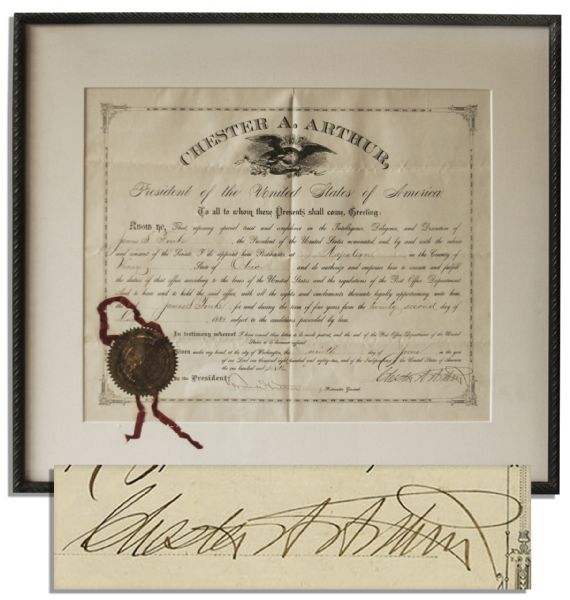 CHESTER A. ARTHUR,
President of the United States of America
To all to whom these Presents shall come, Greeting:
Know Ye, That reposing special trust and confidence in the Intelligence, Diligence, and Discretion of
James the President of the United States nominated, and, by and with the advice
and consent of the Senate, I do appoint him Postmaster at Napoleon in the County of
Henry State of Ohio and do authorize and empower him to execute and fulfill
the duties of that office according to the laws of the United States and the regulations of the Post Office Department
And to have and to hold the said office, with all the rights and emoluments thereunto legally appertaining unto him,
James for and during the term of four years from the twenty second day of
1882 subject to the conditions prescribed by law.
In testimony whereof I have caused these letters to be made patent, and the seal of the Post Office Department of the United
States to be hereunto affixed.
Given under my hand at the city of Washington, the ninth day of June in the year
of our Lord one thousand eight hundred and eighty-two, and of the Independence of the United States of America
the one hundred and sixth
By the President: Chester A Arthur
Postmaster General.
Chester A Arthur